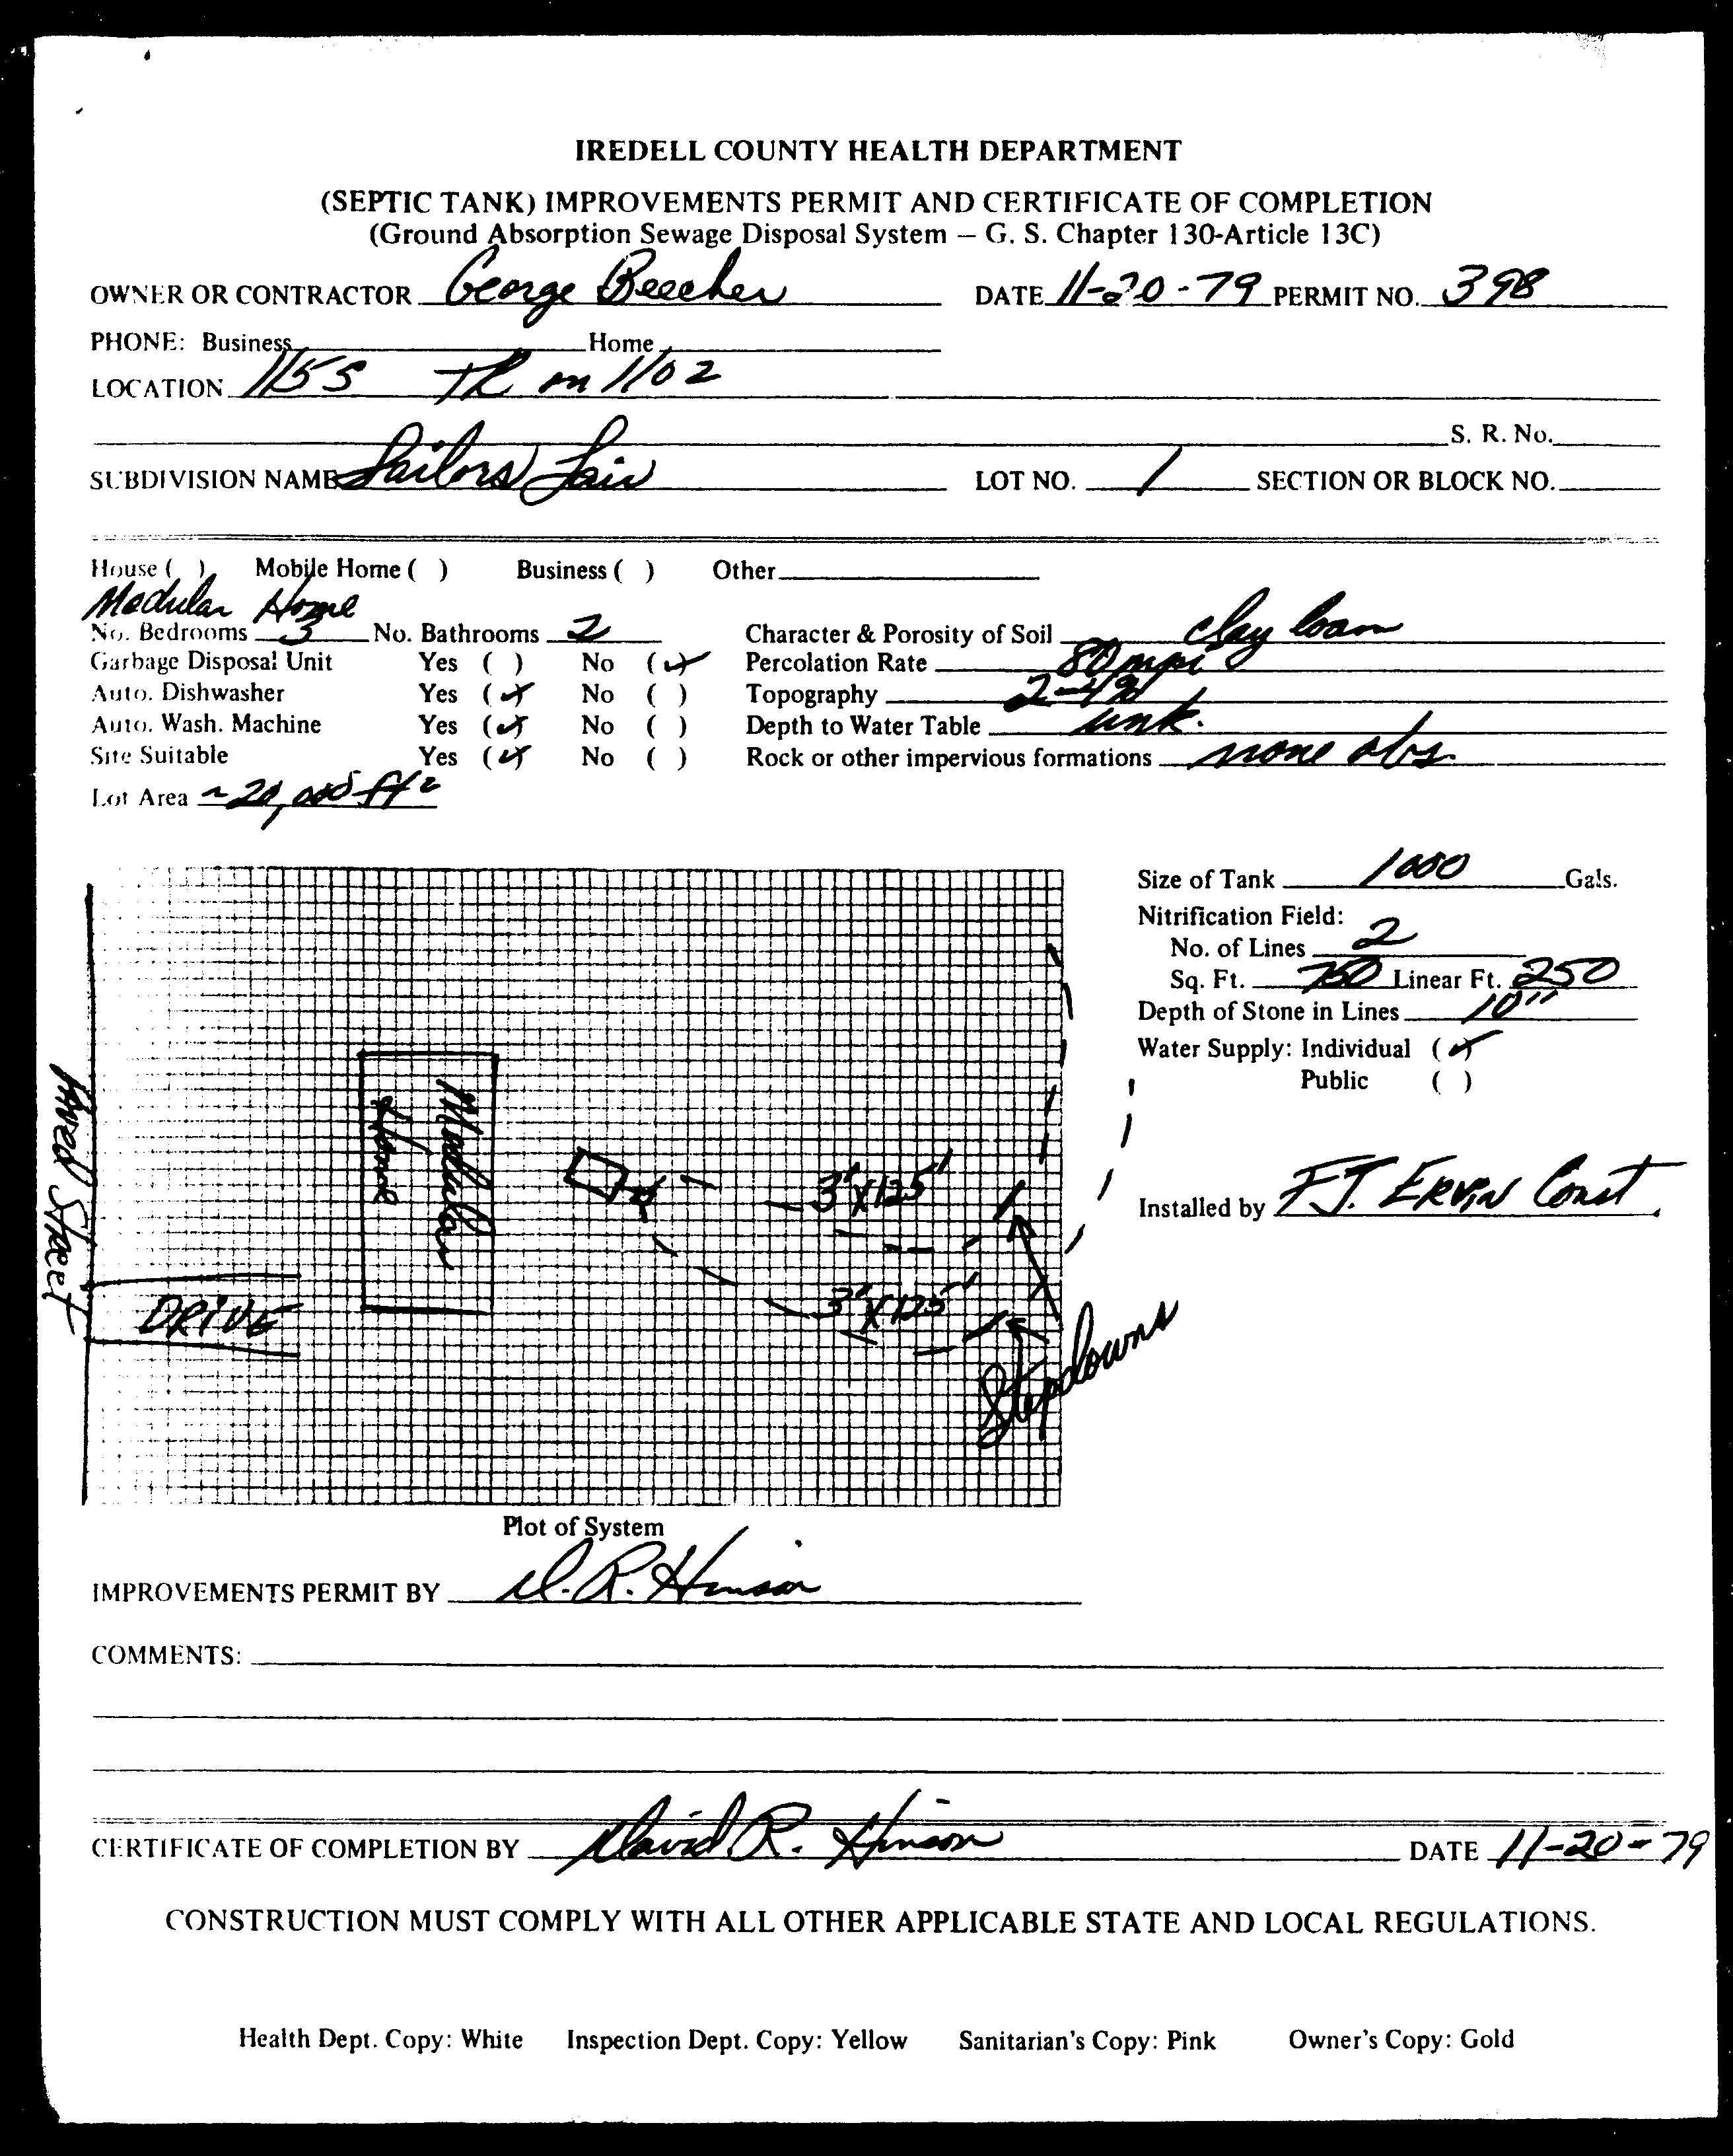 IREDELL COUNTY HEALTH DEPARTMENT
(SEPTIC TANK) IMPROVEMENTS PERMIT AND CERTIFICATE OF COMPLETION
(Ground Absorption Sewage Disposal System — G. S. Chapter 130-Article 13C)
OWNER OR CONTRACTOR George Beecher DATE 11-20-79 PERMIT NO. 398
PHONE: Business Home
LOCATION 1155 TR on 1102
S. R. No.
SUBDIVISION NAME Sailors Lair LOT NO. 1 SECTION OR BLOCK NO.
House ( ) Mobile Home ( ) Business ( ) Other
Modular Home
No. Bedrooms 3 No. Bathrooms 2 Character & Porosity of Soil clay loam
Garbage Disposal Unit Yes ( ) No (✓) Percolation Rate 80 mpi
Auto. Dishwasher Yes (✓) No ( ) Topography 2-4%
Auto. Wash. Machine Yes (✓) No ( ) Depth to Water Table unk.
Site Suitable Yes (✓) No ( ) Rock or other impervious formations none obs.
Lot Area ~20,000 ft²
Size of Tank 1000 Gals.
Nitrification Field:
No. of Lines 2
Sq. Ft. 750 Linear Ft. 250
Depth of Stone in Lines 10"
Water Supply: Individual (✓)
Public ( )
Paved Street
Modular
Home
3'X125'
Installed by F.J. ERVIN Const.
3'X125'
DRIVE
Stepdowns
Plot of System
IMPROVEMENTS PERMIT BY D. R. Hinson
COMMENTS:
CERTIFICATE OF COMPLETION BY David R. Hinson DATE 11-20-79
CONSTRUCTION MUST COMPLY WITH ALL OTHER APPLICABLE STATE AND LOCAL REGULATIONS.
Health Dept. Copy: White Inspection Dept. Copy: Yellow Sanitarian's Copy: Pink Owner's Copy: Gold